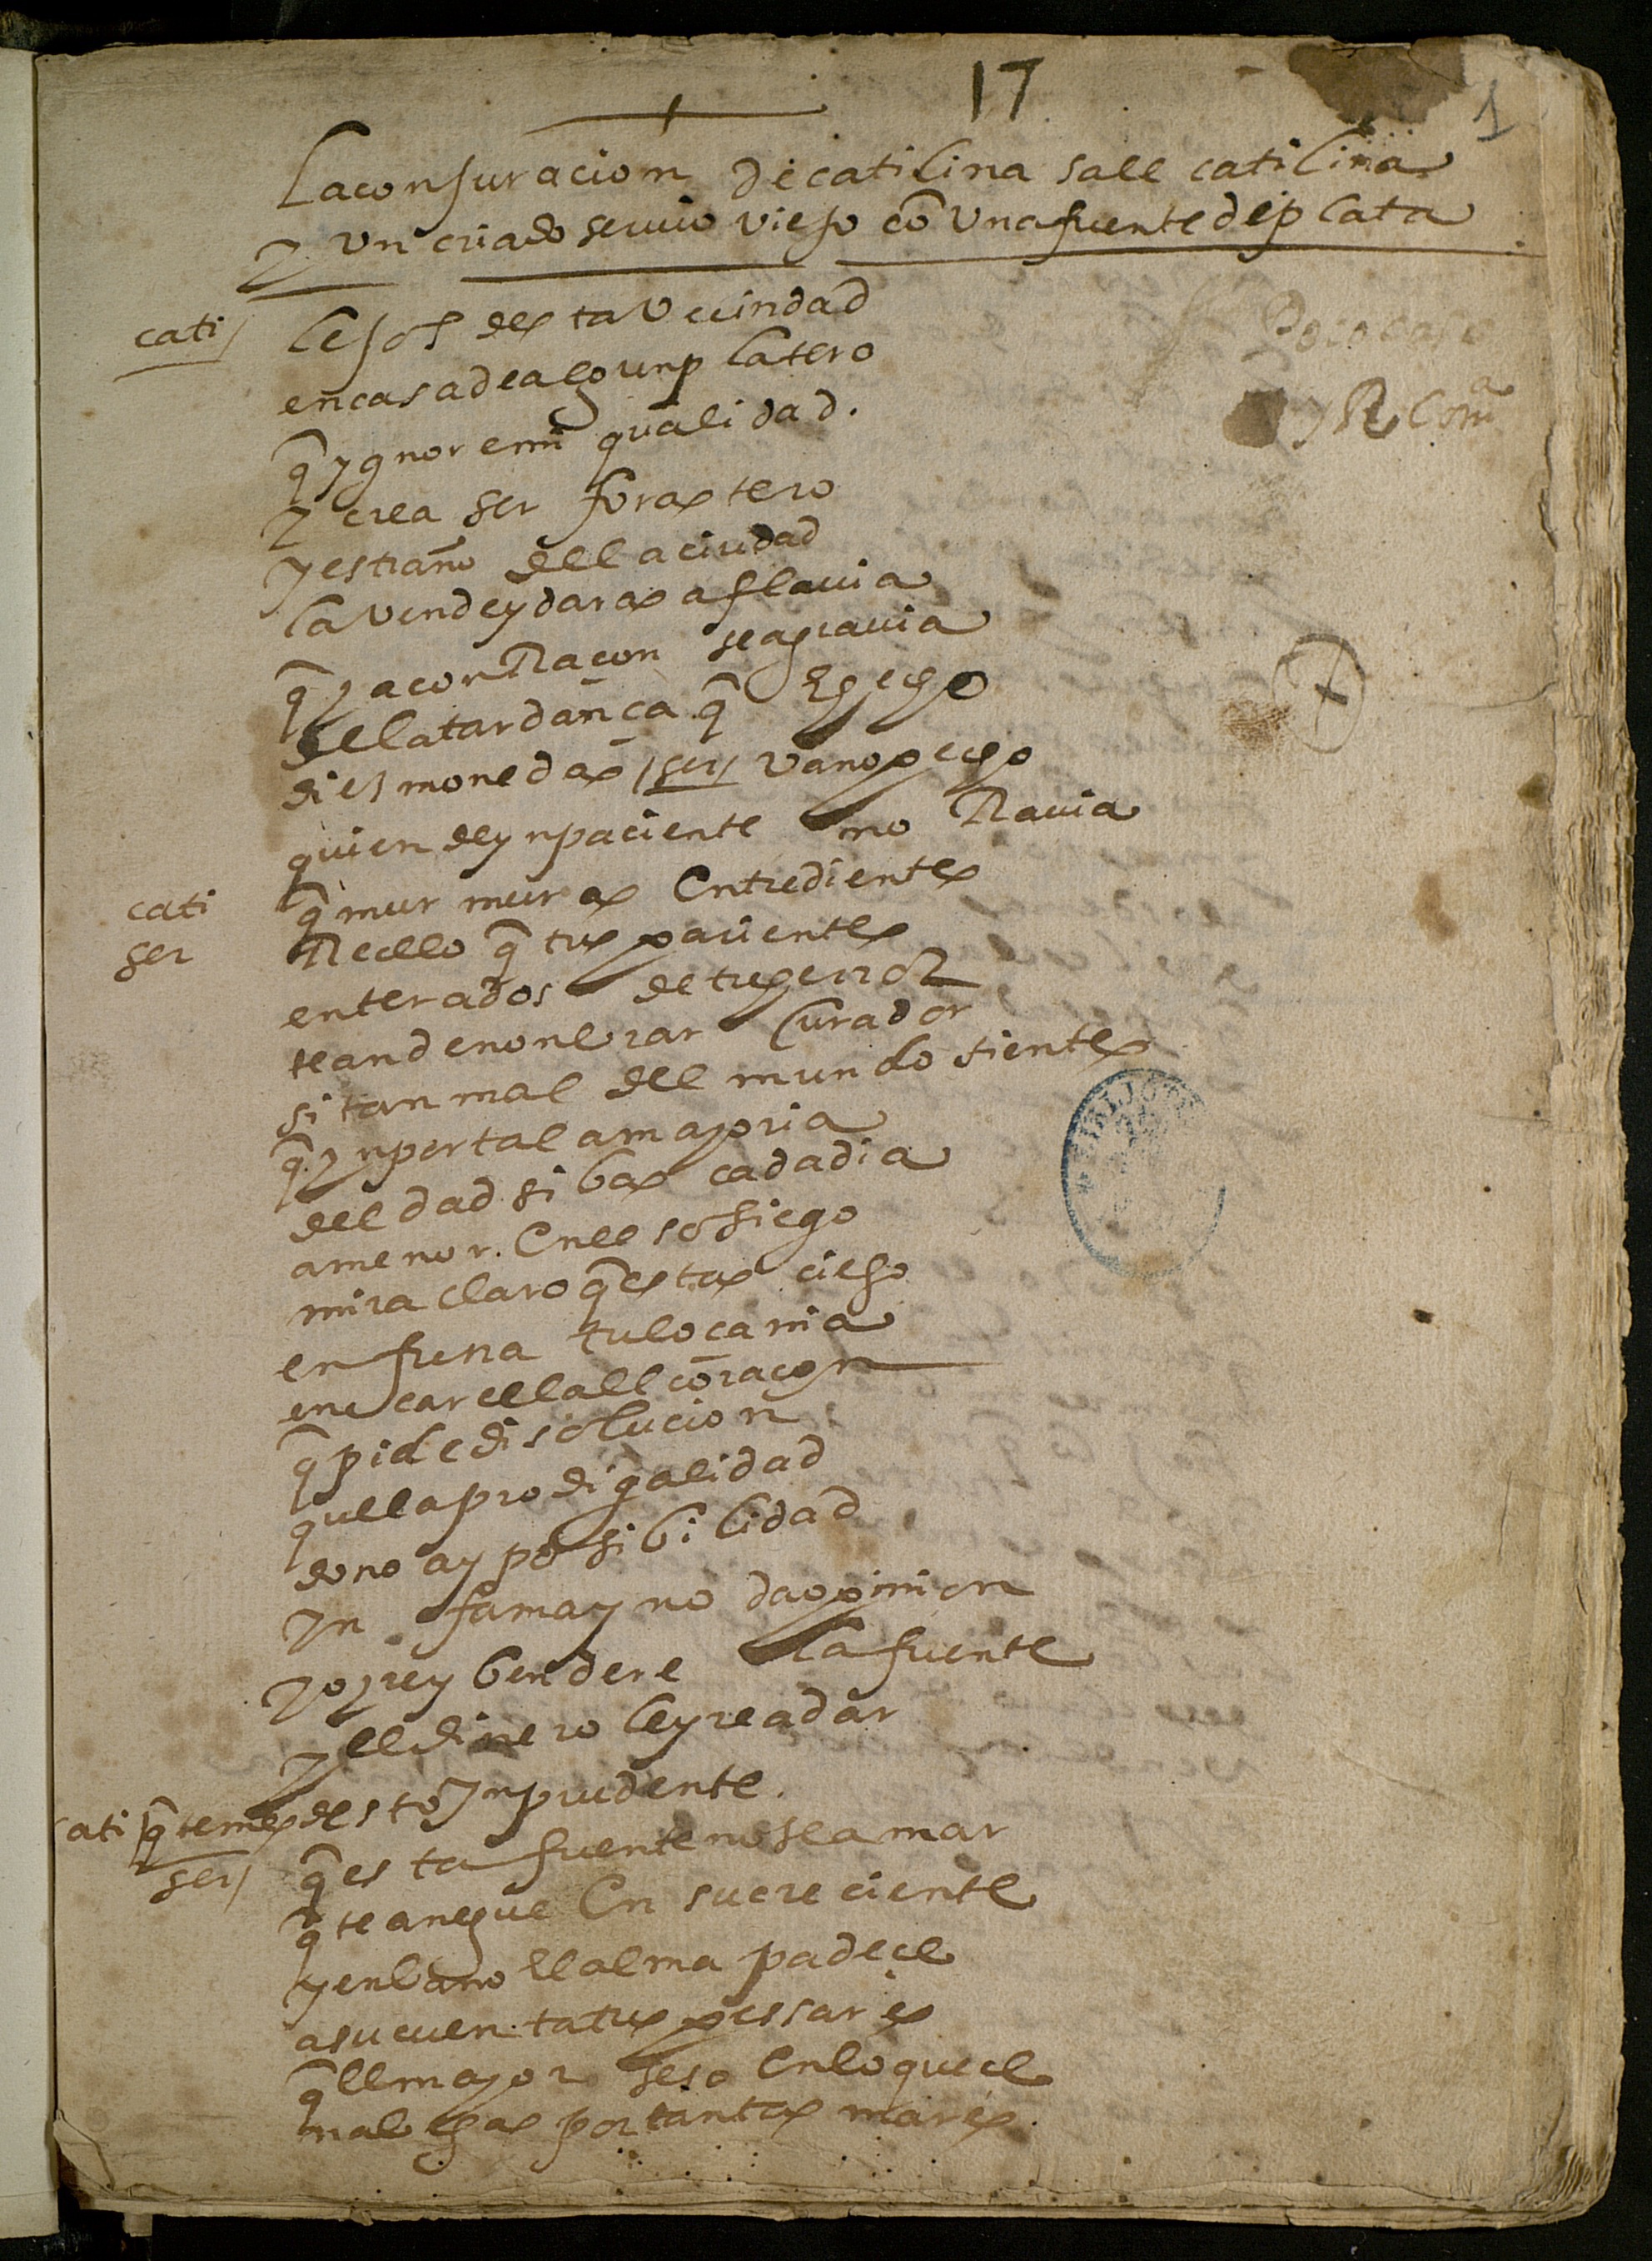 17
1
La conjuracion de catilina sale catilina
y un criado servio viejo cō una fuente de plata
cati lejos desta vecindad
en casa de algun platero
q̄ ygnore mi qualidad.
y crea ser forastero
y estraño de la ciudad
la vende y daras a flavia
q̄ ya con Raçon se agravia
de la tardança q̄
dies monedas / ser / vano pecho
quien de ynpaciente no Ravia
cati q̄ murmuras entre dientes
ser Recelo q̄ tus parientes
enterados de tus error
te an de nonbrar curador
si tan mal del mundo sientes
q̄ ynporta la mayoria
del dad si bas cada dia
a menor. en el sosiego
mira claro q̄ estas ciego
enfrena tu loçania
encarcela al coraçon
q̄ pide disolucion
que la prodigalidad
do no ay posibilidad
ynfama y no da opinion
yo yre y bendere la fuente
y el dinero le yre a dar
cati q̄ temes desto ynprudente.
ser / q̄ esta fuente no sea mar
q̄ te anegue en su creciente
y en bano el alma padece
a su cuenta tus pessares
q̄ el mayor seso enloquece
nabegas por tantos mares.